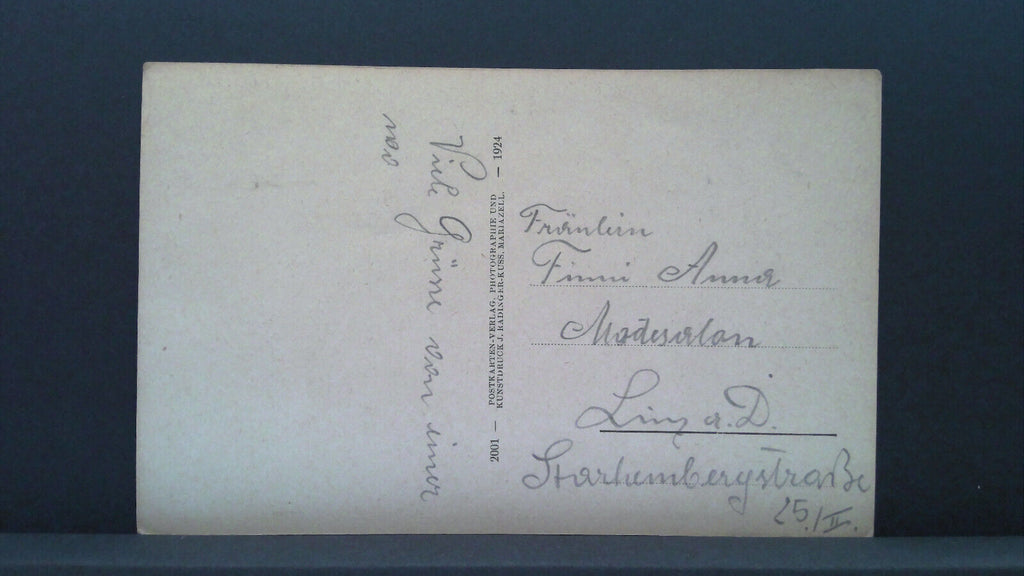 Viele Grüsse von einer
2001 — POSTKARTEN-VERLAG, PHOTOGRAPHIE UND
KUNSTDRUCK J. RADINGER-KUSS, MARIAZELL. — 1924
Fräulein
Finni Anna
Modesalon
Linz a. D.
Starhembergstraße
25./II.